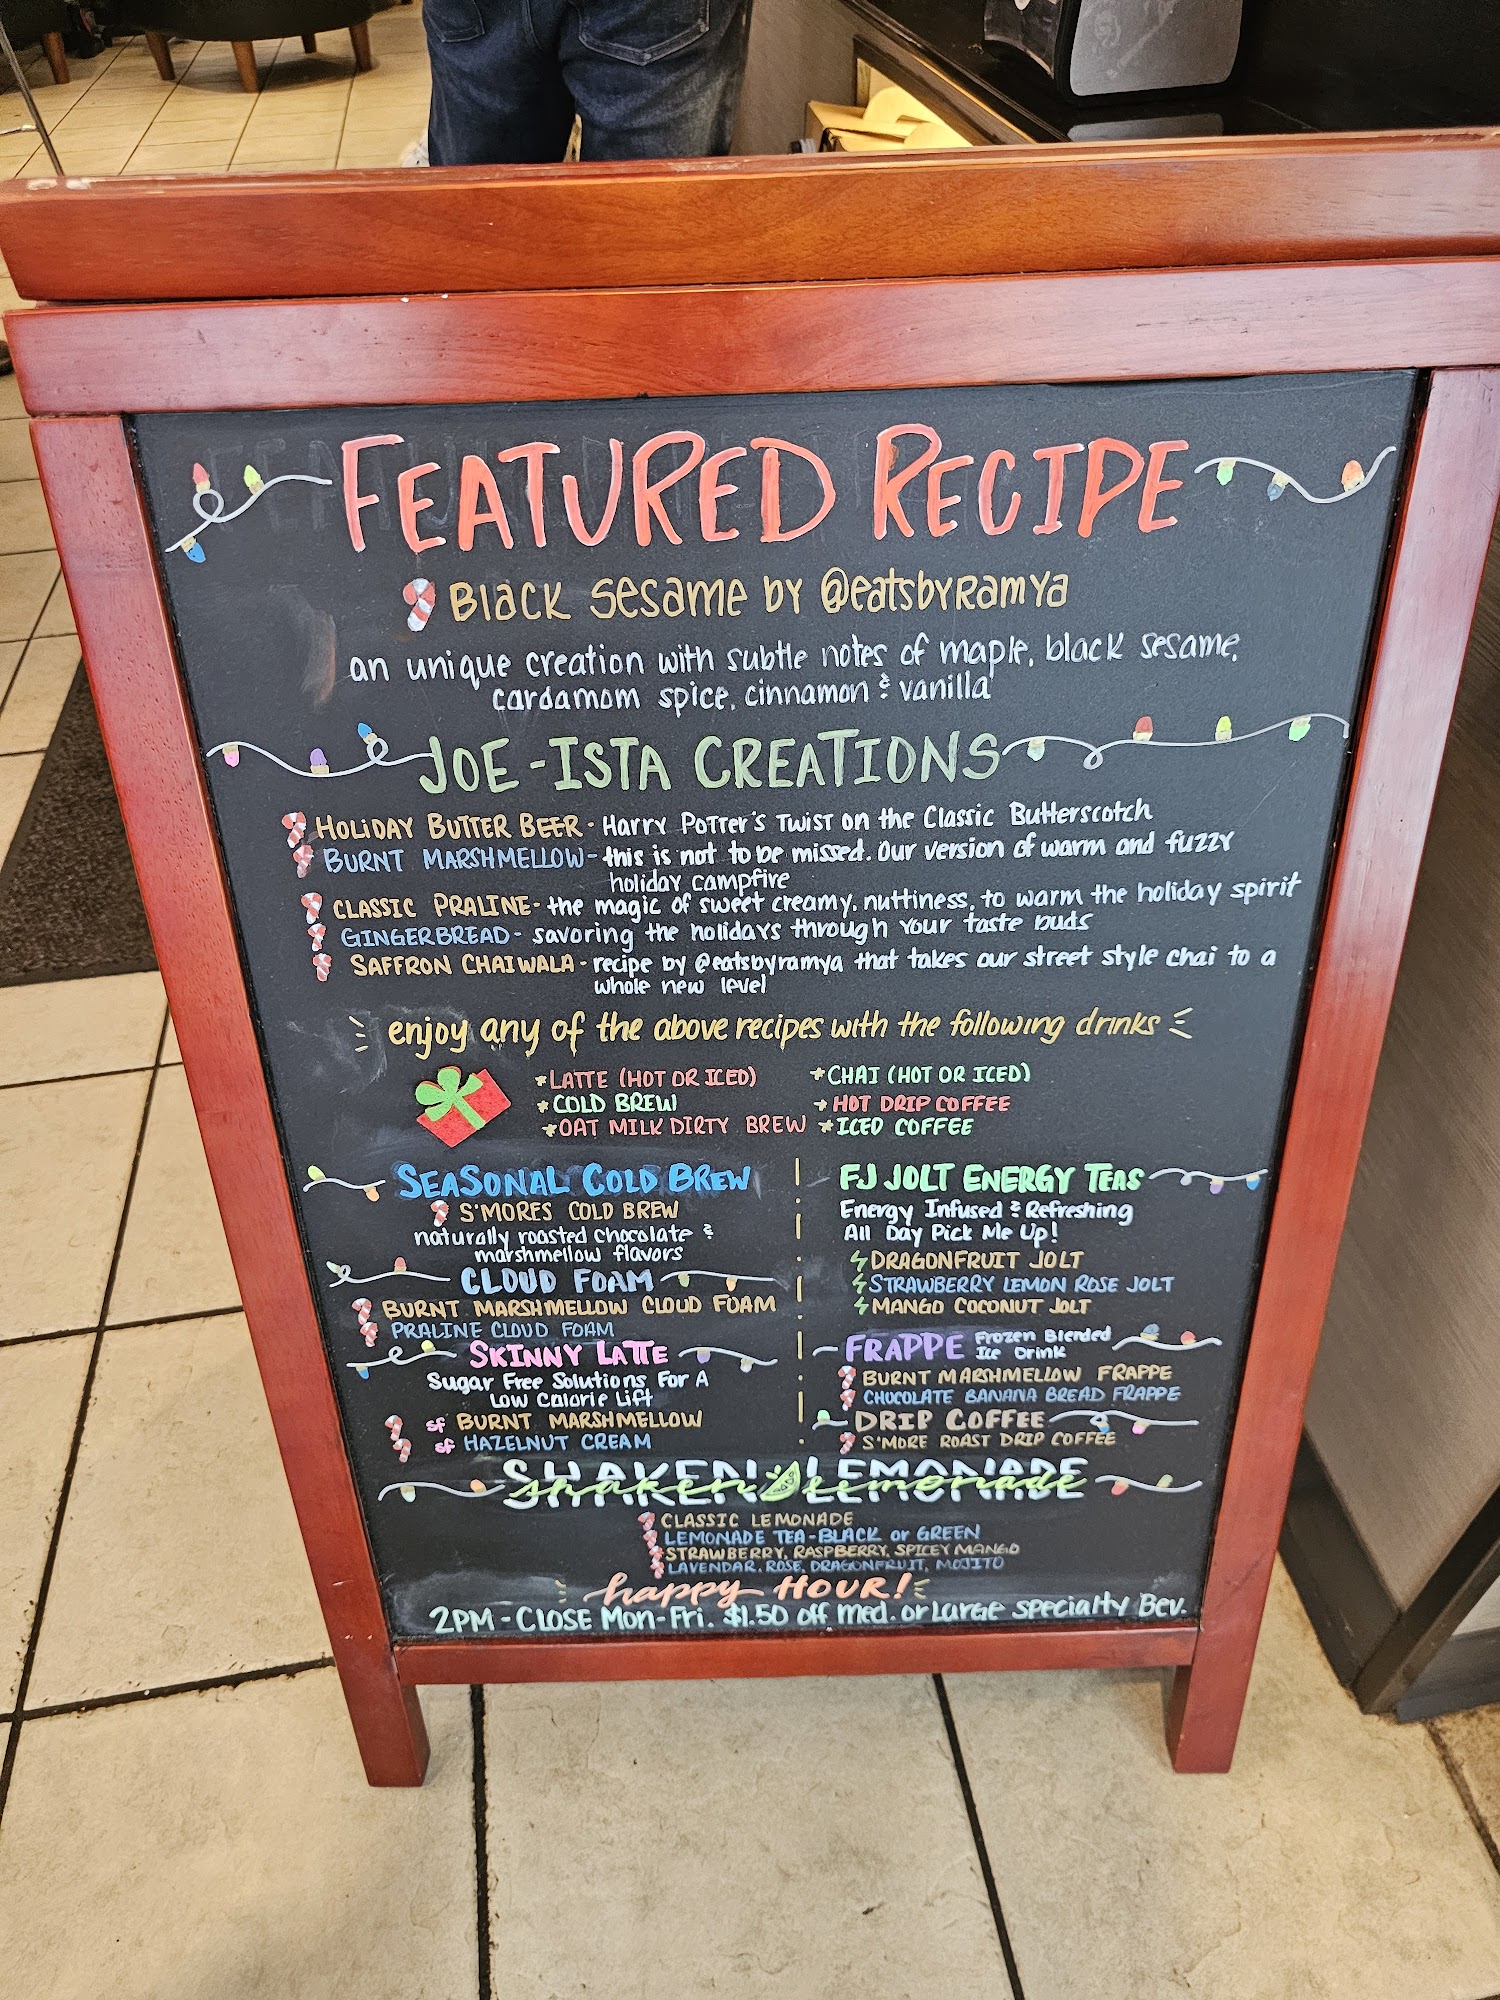 FEATURED RECIPE
BLACK SESAME BY @eatsbyRamya
an unique creation with subtle notes of maple, black sesame,
cardamom spice, cinnamon & vanilla
JOE-ISTA CREATIONS
HOLIDAY BUTTER BEER - Harry Potter's Twist on the Classic Butterscotch
BURNT MARSHMELLOW - this is not to be missed. Our version of warm and fuzzy
holiday campfire
CLASSIC PRALINE - the magic of sweet creamy, nuttiness, to warm the holiday spirit
GINGERBREAD - savoring the holidays through your taste buds
SAFFRON CHAIWALA - recipe by @eatsbyramya that takes our street style chai to a
whole new level
enjoy any of the above recipes with the following drinks
*LATTE (HOT OR ICED)
*COLD BREW
*OAT MILK DIRTY BREW
*CHAI (HOT OR ICED)
*HOT DRIP COFFEE
*ICED COFFEE
SEASONAL COLD BREW
S'MORES COLD BREW
naturally roasted chocolate &
marshmellow flavors
CLOUD FOAM
BURNT MARSHMELLOW CLOUD FOAM
PRALINE CLOUD FOAM
SKINNY LATTE
Sugar Free Solutions For A
Low Calorie Lift
sf BURNT MARSHMELLOW
sf HAZELNUT CREAM
FJ JOLT ENERGY TEAS
Energy Infused & Refreshing
All Day Pick Me Up!
DRAGONFRUIT JOLT
STRAWBERRY LEMON ROSE JOLT
MANGO COCONUT JOLT
FRAPPE Frozen Blended
Ice Drink
BURNT MARSHMELLOW FRAPPE
CHOCOLATE BANANA BREAD FRAPPE
DRIP COFFEE
S'MORE ROAST DRIP COFFEE
SHAKEN LEMONADE
shaken lemonade
CLASSIC LEMONADE
LEMONADE TEA-BLACK or GREEN
STRAWBERRY, RASPBERRY, SPICEY MANGO
LAVENDAR, ROSE, DRAGONFRUIT, MOJITO
happy HOUR!
2PM - CLOSE Mon-Fri. $1.50 off med. or Large specialty Bev.